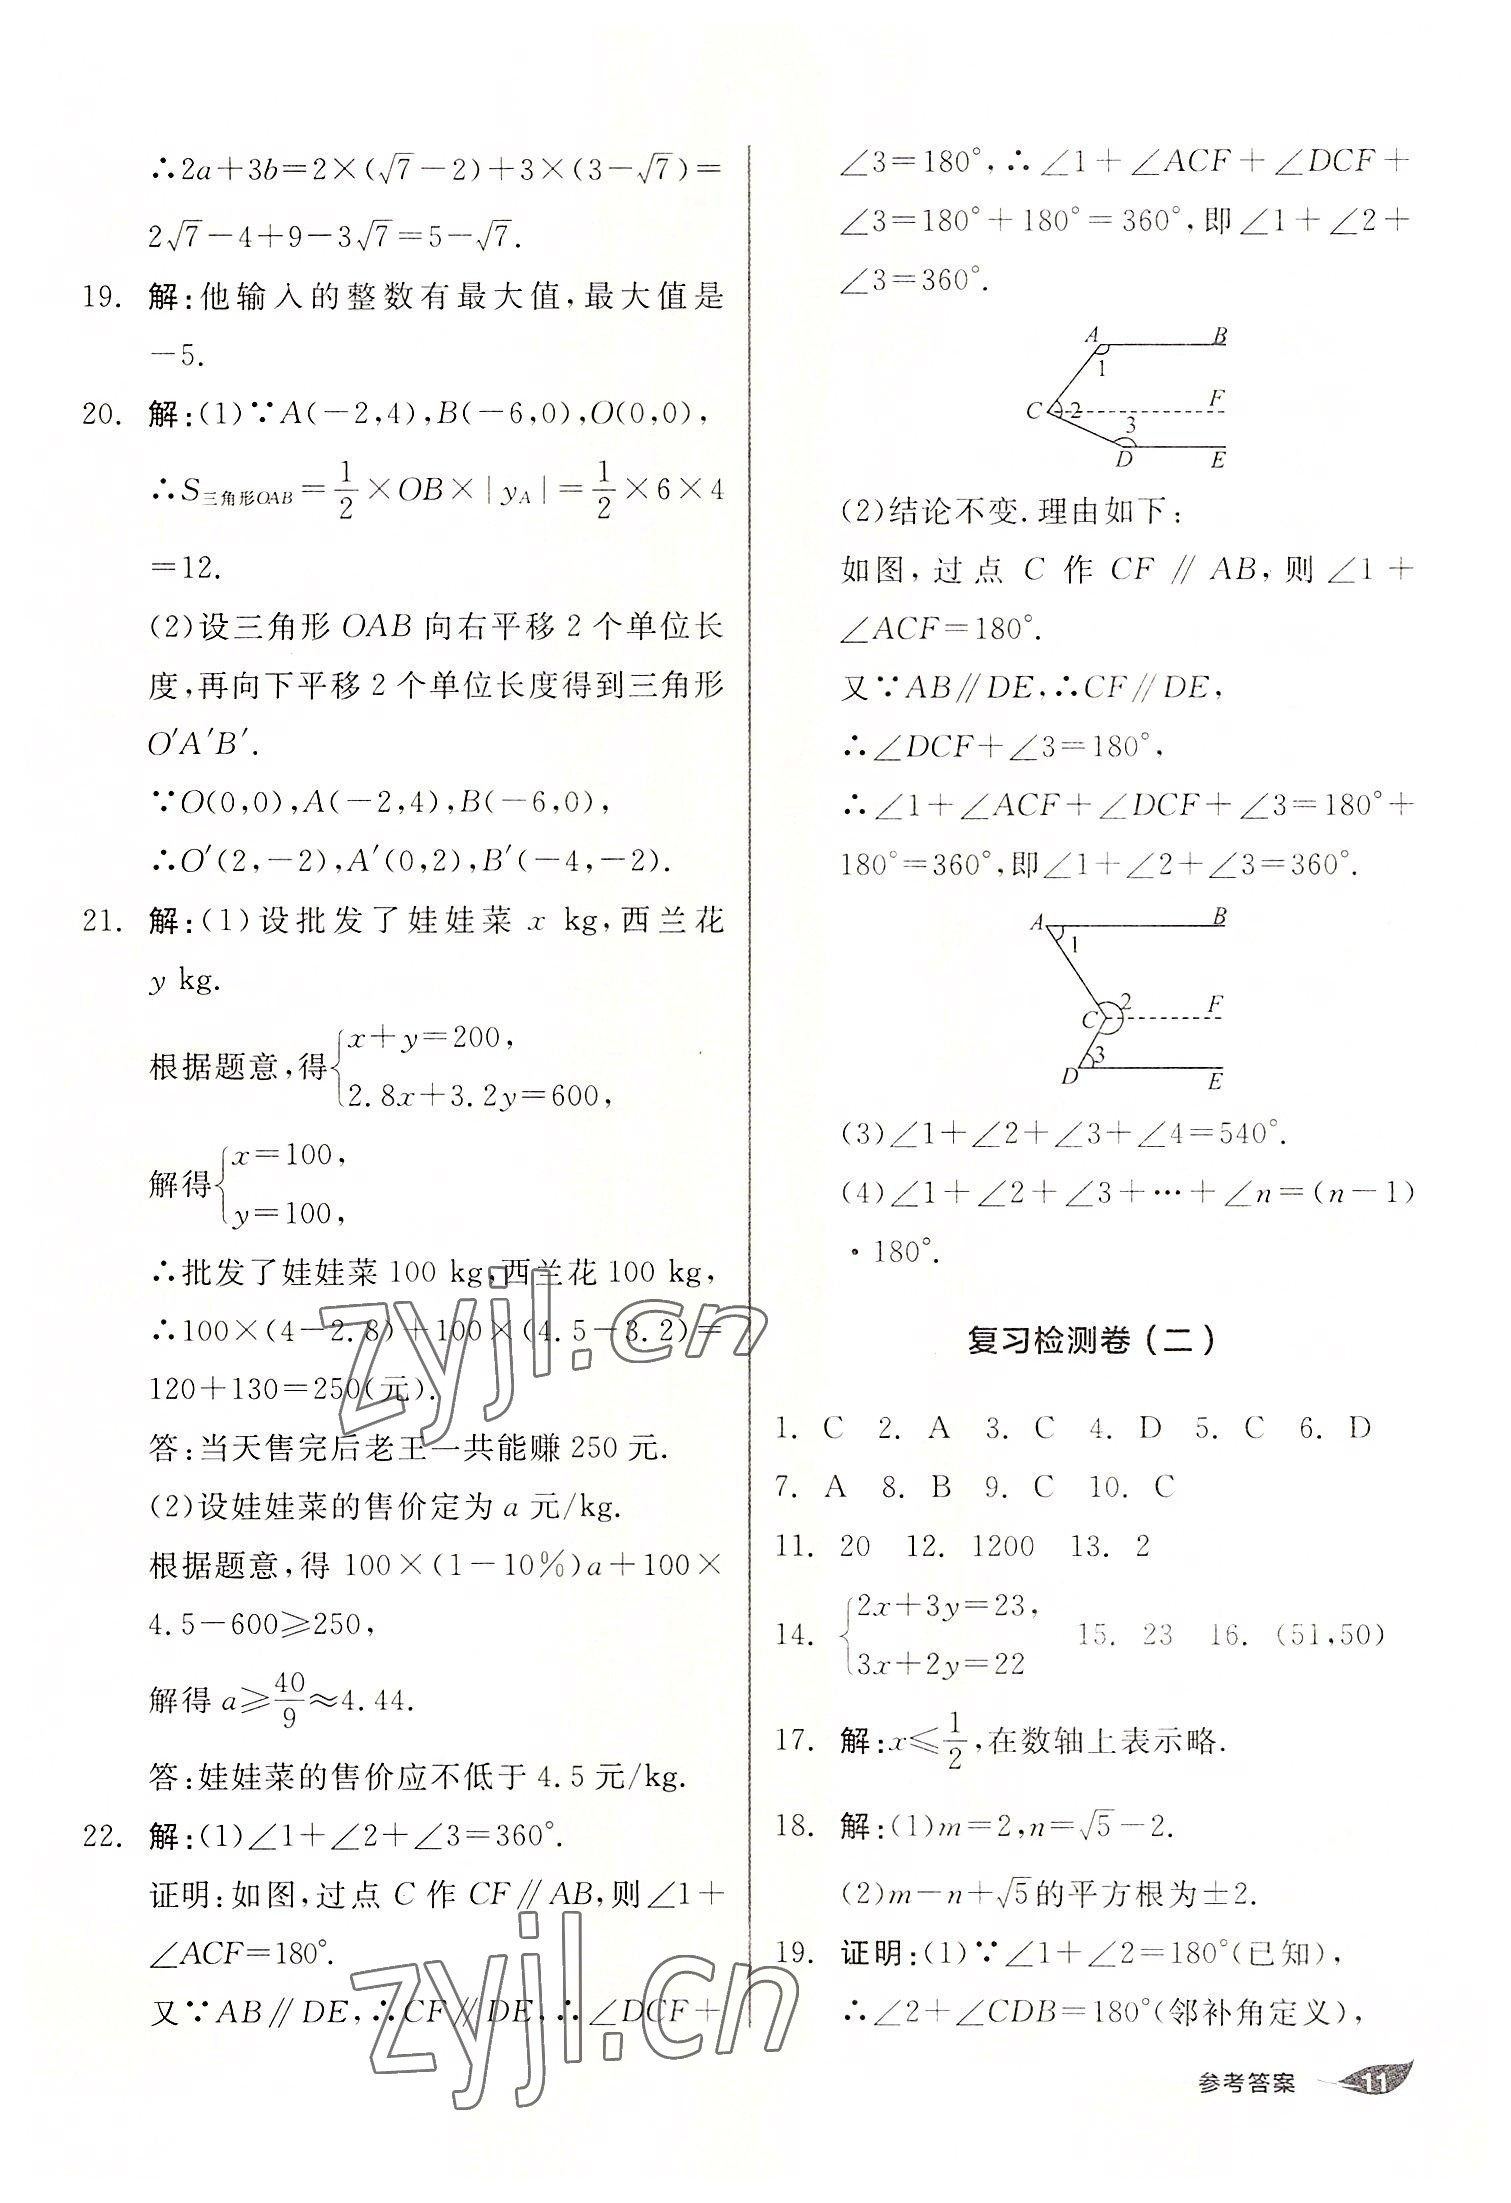 ∴2a+3b=2×(√7-2)+3×(3-√7)=
2√7-4+9-3√7=5-√7.
19. 解:他输入的整数有最大值,最大值是
-5.
20. 解:(1)∵A(-2,4),B(-6,0),O(0,0),
∴S三角形OAB=1/2×OB×|yA|=1/2×6×4
=12.
(2)设三角形OAB向右平移2个单位长
度,再向下平移2个单位长度得到三角形
O′A′B′.
∵O(0,0),A(-2,4),B(-6,0),
∴O′(2,-2),A′(0,2),B′(-4,-2).
21. 解:(1)设批发了娃娃菜 x kg,西兰花
y kg.
根据题意,得{x+y=200,
2.8x+3.2y=600,
解得{x=100,
y=100,
∴批发了娃娃菜100 kg,西兰花100 kg,
∴100×(4-2.8)+100×(4.5-3.2)=
120+130=250(元).
答:当天售完后老王一共能赚250元.
(2)设娃娃菜的售价定为a元/kg.
根据题意,得100×(1-10%)a+100×
4.5-600≥250,
解得a≥40/9≈4.44.
答:娃娃菜的售价应不低于4.5元/kg.
22. 解:(1)∠1+∠2+∠3=360°.
证明:如图,过点C作CF∥AB,则∠1+
∠ACF=180°.
又∵AB∥DE,∴CF∥DE,∴∠DCF+
∠3=180°,∴∠1+∠ACF+∠DCF+
∠3=180°+180°=360°,即∠1+∠2+
∠3=360°.
A B
1
C 2 F
3
D E
(2)结论不变.理由如下:
如图,过点C作CF∥AB,则∠1+
∠ACF=180°.
又∵AB∥DE,∴CF∥DE,
∴∠DCF+∠3=180°,
∴∠1+∠ACF+∠DCF+∠3=180°+
180°=360°,即∠1+∠2+∠3=360°.
A B
1
2 F
C
3
D E
(3)∠1+∠2+∠3+∠4=540°.
(4)∠1+∠2+∠3+…+∠n=(n-1)
·180°.
复习检测卷(二)
1. C 2. A 3. C 4. D 5. C 6. D
7. A 8. B 9. C 10. C
11. 20 12. 1200 13. 2
14. {2x+3y=23,
3x+2y=22 15. 23 16. (51,50)
17. 解:x≤1/2,在数轴上表示略.
18. 解:(1)m=2,n=√5-2.
(2)m-n+√5的平方根为±2.
19. 证明:(1)∵∠1+∠2=180°(已知),
∴∠2+∠CDB=180°(邻补角定义),
参考答案 11
zyjl.cn
zyjl.cn